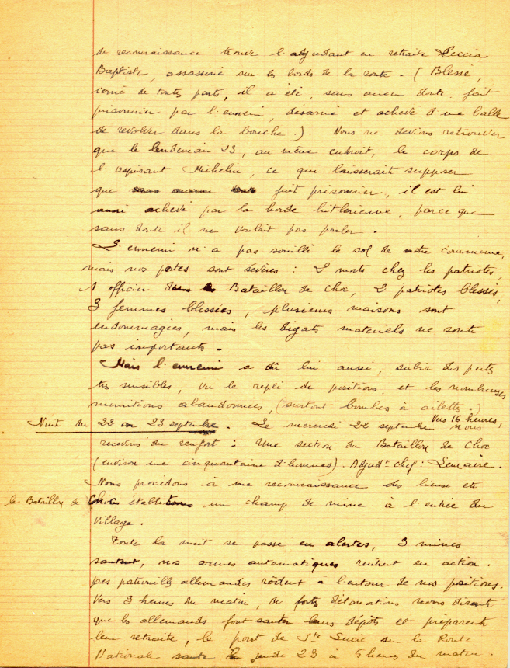 de reconnaissance trouve l'adjudant en retraite Leccia
Baptiste, assassiné sur les bords de la route. (Blessé,
cerné de toute parts, il a été, sans aucun doute fait
prisonnier par l'ennemi, désarmé et achevé d'une balle
de révolver dans la bouche.) Nous ne devions retrouver
que le lendemain 23, au même endroit, le corps de
l'aspirant Michelin, ce que laisserait supposer
que fait prisonnier, il est lui
aussi achevé par la horde hitlérienne, parce que
sans doute il ne voulait pas parler.
L'ennemi n'a pas souillé le sol de notre commune,
mais nos pertes sont sévères : 2 morts chez les patriotes,
1 officier du Bataillon de Choc, 2 patriotes blessés,
3 femmes blessées, plusieurs maisons sont
endommagées, mais les dégats matériels ne sont
pas importants.
Mais l'ennemi a dû lui aussi, subir des pertes
très sensibles, vu le repli de positions et les nombreuses
munitions abandonnées, (surtout bombes à ailettes)
Nuit du 22 au 23 septembre. Le mercredi 22 septembre vers 16 heures, nous
recevons du renfort : Une section du Bataillon de Choc
(environ une cinquantaine d'hommes). Adjud-chef Lemaire.
Nous procédons à une reconnaissance des lieux et
le Bataillon de Choc établit un champ de mines à l'entrée du
Village.
Toute la nuit se passe en alertes, 3 mines
sautent, nos armes automatiques rentrent en action.
des patrouilles allemandes rôdent à l'entour de nos positions.
Vers 3 heures du matin, de fortes détonations nous disent
que les allemands font sauter leurs dépôts et préparent
leur retraite, le pont de Ste Lucie de la Route
Nationale saute le jeudi 23 à 5 heures du matin.